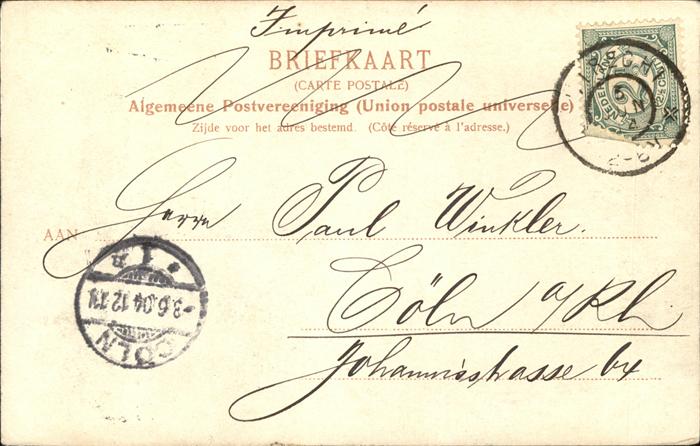 Imprimé
BRIEFKAART
(CARTE POSTALE)
Algemeene Postvereeniging (Union postale universelle)
Zijde voor het adres bestemd. (Côté réservé à l'adresse.)
AAN Herrn Paul Winkler.
Cöln a/Rh
Johannisstrasse 64
CÖLN
-3.6.04.12-1V
* 1 n